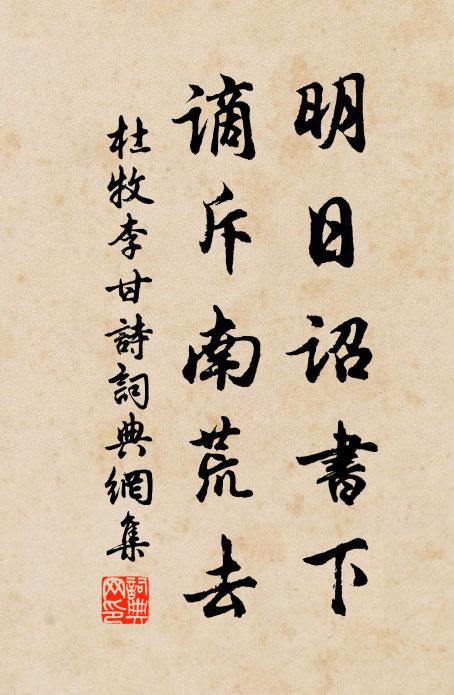 明日詔書下
謫斥南荒去
杜牧李甘詩詞典網集
詞典網印